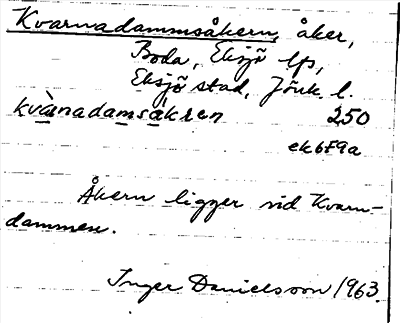 Kvarnadammsåkern, åker,
Boda, Eksjö lfs,
Eksjö stad, Jönk. l.
kvànadamsåkren 250
ek6F9a
Åkern ligger vid Kvarn-
dammen.
Inger Danielsson 1963